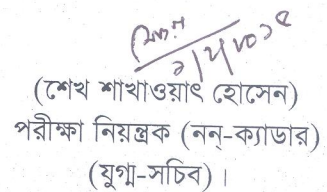 (শেখ শাখাওয়াৎ হোসেন)
পরীক্ষা নিয়ন্ত্রক (নন্-ক্যাডার)
(যুগ্ম-সচিব)।